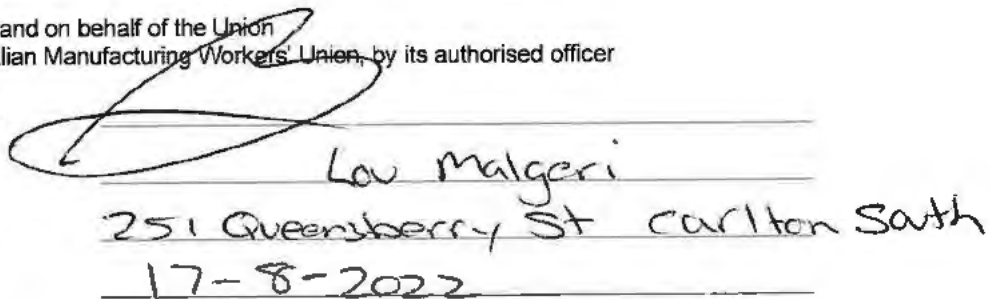 and on behalf of the Union
lian Manufacturing Workers' Union, by its authorised officer
Lou Malgeri
251 Queensberry St Carlton South
17-8-2022